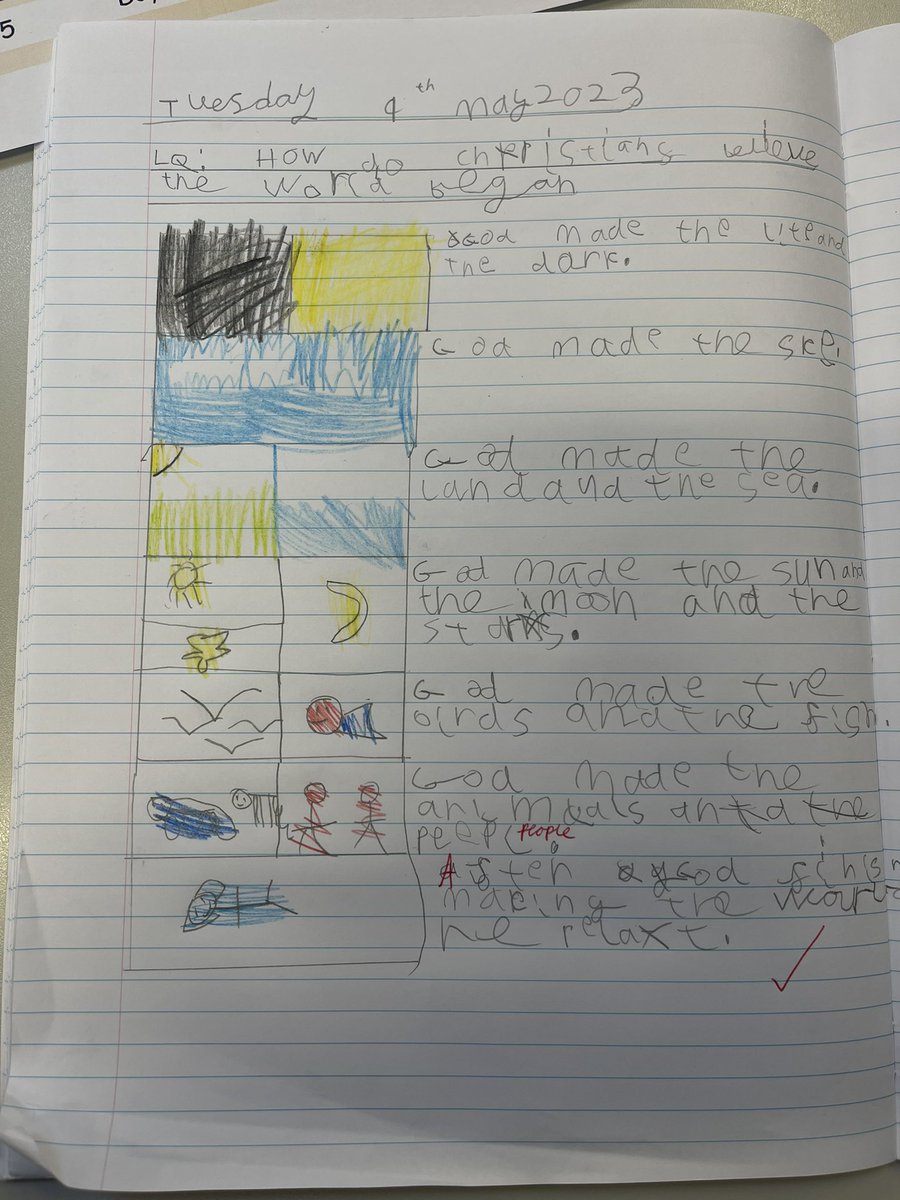 5
Tuesday 4th may 2023
LQ: HOW do christians believe
the world began
God made the lite and
the dark.
God made the ske.
God made the
land and the sea.
God made the sun and
the moon and the
stars.
God made the
birds and the fish.
God made the
animals and the
peepl people.
After God finish
making the
he relaxt.